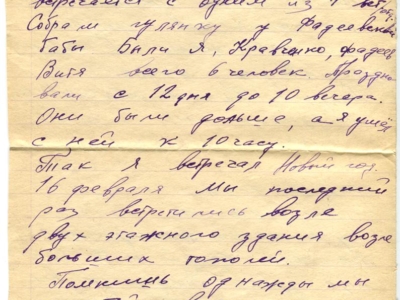 встречался с одним из
Собрали гулянку у Фадеевской
бабы были я, Кравченко, Фадеев
Витя всего 6 человек. Праздно
вали с 12 дня до 10 вечера.
Они были дольше, а я ушёл
с ней к 10 часу.
Так я встречал Новый год.
16 февраля мы последний
раз встретились возле
двух этажного здания возле
больших тополей.
Помнишь однажды мы